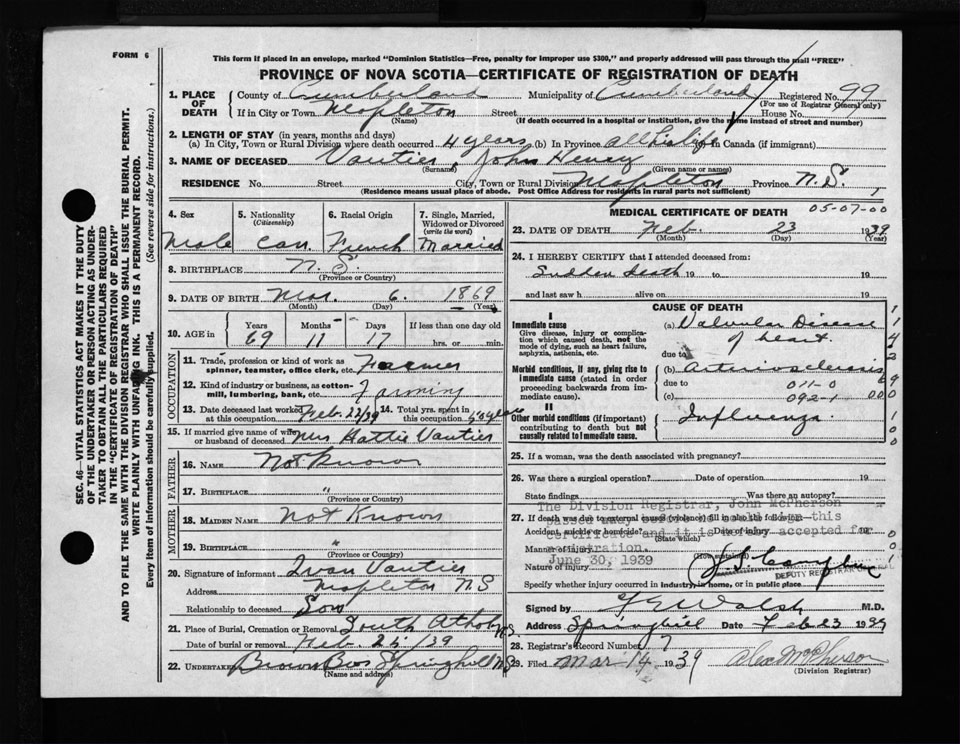 FORM 6
This form if placed in an envelope, marked "Dominion Statistics—Free, penalty for improper use $300," and properly addressed will pass through the mail "FREE"
PROVINCE OF NOVA SCOTIA—CERTIFICATE OF REGISTRATION OF DEATH
1. PLACE OF DEATH County of Cumberland Municipality of Cumberland Registered No. 99
(For use of Registrar General only)
If in City or Town Mapleton Street House No.
(Name) (If death occurred in a hospital or institution, give the name instead of street and number)
2. LENGTH OF STAY (in years, months and days)
(a) In City, Town or Rural Division where death occurred 4 years (b) In Province all his life In Canada (if immigrant)
3. NAME OF DECEASED Vautier, John Henry
(Surname) (Given name or names)
RESIDENCE No. Street City, Town or Rural Division Mapleton Province N.S.
(Residence means usual place of abode. Post Office Address for residents in rural parts not sufficient)
4. Sex Male
5. Nationality (Citizenship) Can.
6. Racial Origin French
7. Single, Married, Widowed or Divorced (write the word) Married
8. BIRTHPLACE N. S.
(Province or Country)
9. DATE OF BIRTH Mar. 6. 1869
(Month) (Day) (Year)
10. AGE in Years 69 Months 11 Days 17 If less than one day old hrs. or min.
OCCUPATION
11. Trade, profession or kind of work as spinner, teamster, office clerk, etc. Farmer
12. Kind of industry or business, as cotton-mill, lumbering, bank, etc. Farming
13. Date deceased last worked at this occupation Feb. 22/39 14. Total yrs. spent in this occupation years
15. If married give name of wife or husband of deceased Mrs Hattie Vautier
FATHER
16. NAME Not Known
17. BIRTHPLACE "
(Province or Country)
MOTHER
18. MAIDEN NAME Not Known
19. BIRTHPLACE "
(Province or Country)
20. Signature of informant Ivan Vautier
Address Mapleton N S
Relationship to deceased Son
21. Place of Burial, Cremation or Removal South Athol N.S.
Date of burial or removal Feb. 25/39
22. UNDERTAKER Brown Bros Springhill N.S
(Name and address)
MEDICAL CERTIFICATE OF DEATH 05-07-00
23. DATE OF DEATH Feb. 23 1939
(Month) (Day) (Year)
24. I HEREBY CERTIFY that I attended deceased from:
Sudden death 19 to 19
and last saw h alive on 19
CAUSE OF DEATH
I
Immediate cause
Give disease, injury or complication which caused death, not the mode of dying, such as heart failure, asphyxia, asthenia, etc.
(a) Valvular Disease of heart
due to
Morbid conditions, if any, giving rise to immediate cause (stated in order proceeding backwards from immediate cause).
(b) Arteriosclerosis
due to 011-0
(c) 092-1
II
Other morbid conditions (if important) contributing to death but not causally related to immediate cause.
Influenza
25. If a woman, was the death associated with pregnancy?
26. Was there a surgical operation? Date of operation 19
State findings Was there an autopsy?
The Division Registrar, John McPherson
27. If death was due to external causes (violence) fill in also the following:
passed away this
Accident, suicide or homicide? Date of injury 19
(State which)
certificate and it is accepted for
Manner of injury
(How sustained)
registration.
Nature of injury
June 30, 1939
DEPUTY REGISTRAR
Specify whether injury occurred in industry, in home, or in public place
Signed by Walsh M.D.
Address Springhill Date Feb 23 1939
28. Registrar's Record Number 7
29. Filed Mar 14 1939 Alex McPherson
(Division Registrar)
SEC. 46—VITAL STATISTICS ACT MAKES IT THE DUTY OF THE UNDERTAKER OR PERSON ACTING AS UNDERTAKER TO OBTAIN ALL THE PARTICULARS REQUIRED IN THE "CERTIFICATE OF REGISTRATION OF DEATH" AND TO FILE THE SAME WITH THE DIVISION REGISTRAR WHO SHALL ISSUE THE BURIAL PERMIT.
WRITE PLAINLY WITH UNFADING INK. THIS IS A PERMANENT RECORD.
Every item of information should be carefully supplied. (See reverse side for instructions.)